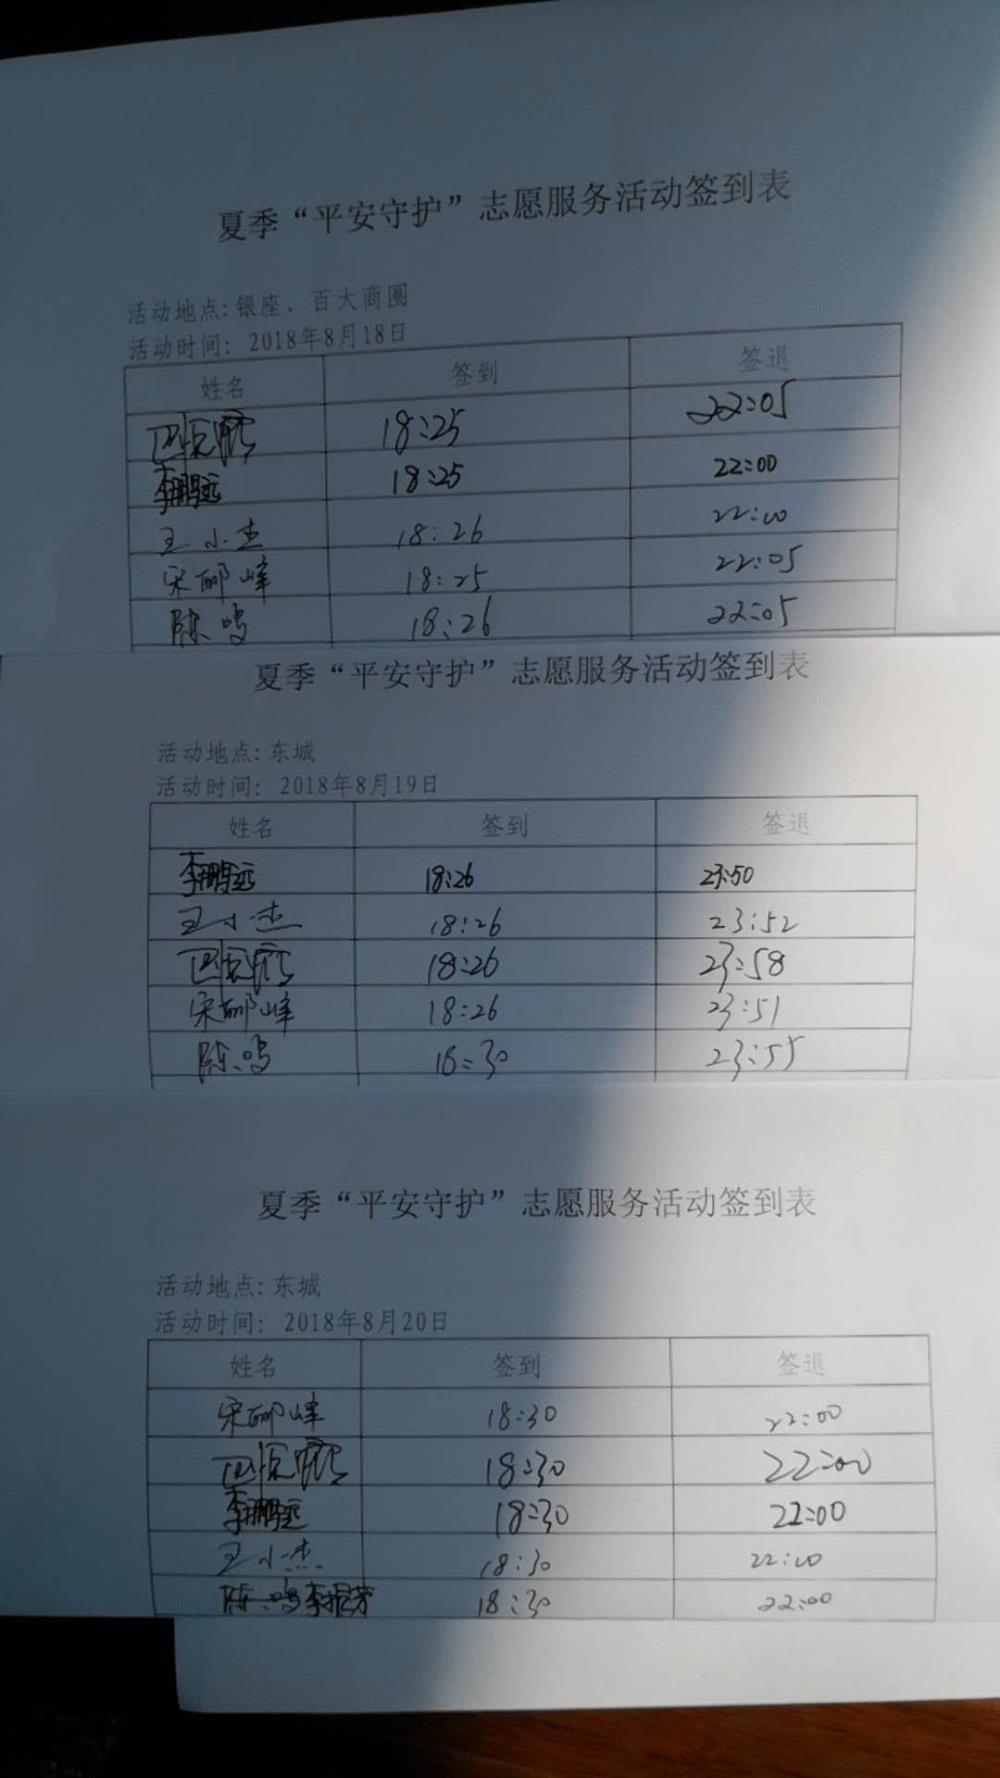 夏季“平安守护”志愿服务活动签到表
活动地点：银座、百大商圈
活动时间： 2018年8月18日
姓名 签到 签退
18:25 22:05
李鹏远 18:25 22:00
王小杰 18:26 22:00
宋郦峰 18:25 22:05
陈鸣 18:26 22:05
夏季“平安守护”志愿服务活动签到表
活动地点：东城
活动时间： 2018年8月19日
姓名 签到 签退
李鹏远 18:26 23:50
王小杰 18:26 23:52
18:26 23:58
宋郦峰 18:26 23:51
陈鸣 18:30 23:55
夏季“平安守护”志愿服务活动签到表
活动地点：东城
活动时间： 2018年8月20日
姓名 签到 签退
宋郦峰 18:30 22:00
18:30 22:00
李鹏远 18:30 22:00
王小杰 18:30 22:00
陈鸣 李振芳 18:30 22:00